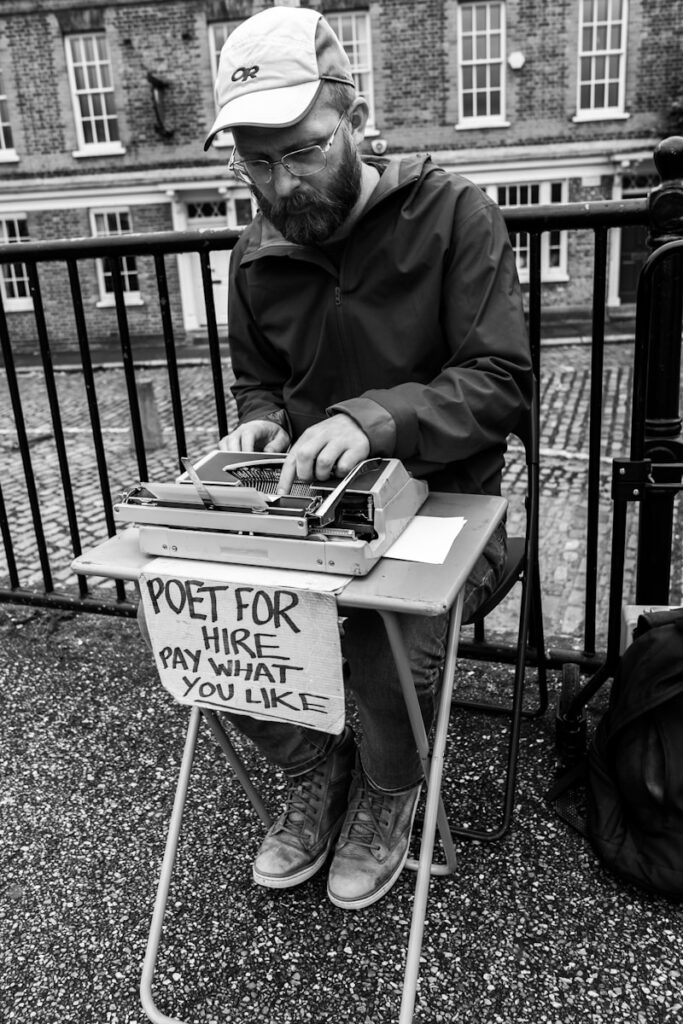 OR
POET FOR
HIRE
PAY WHAT
YOU LIKE